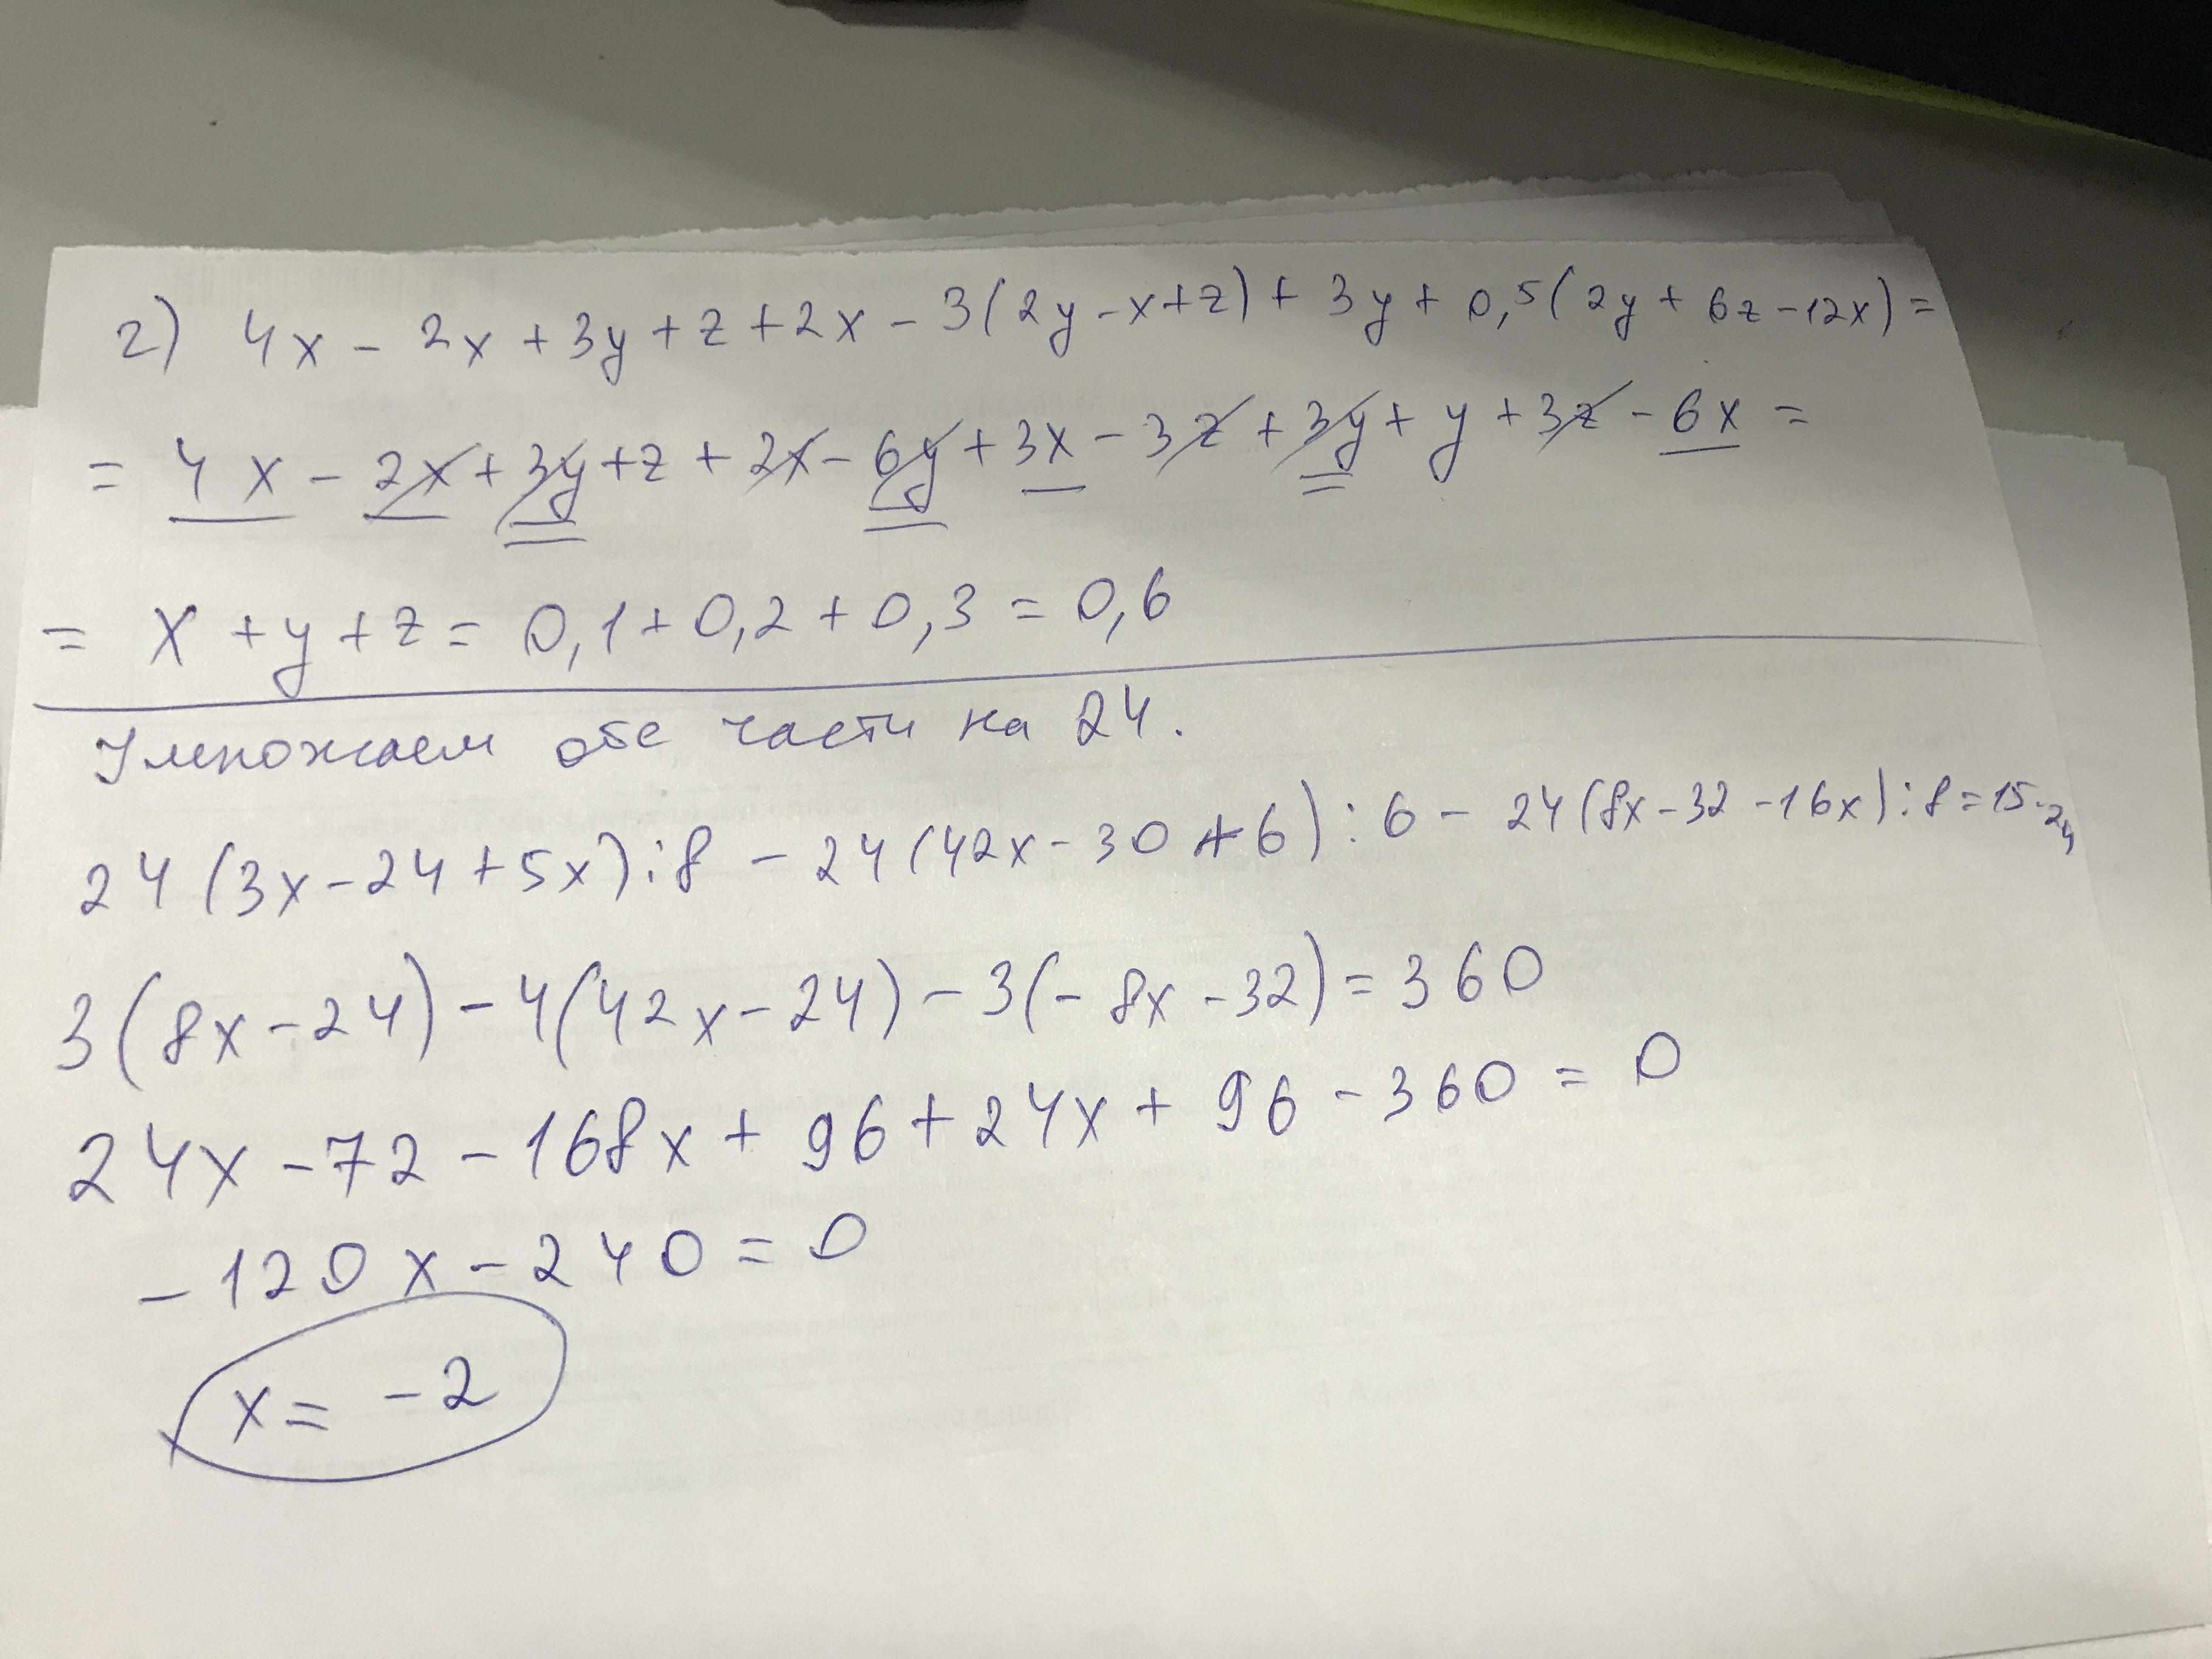 г) 4x - 2x + 3y + z + 2x - 3(2y - x + z) + 3y + 0,5(2y + 6z - 12x) =
= 4x - 2x + 3y + z + 2x - 6y + 3x - 3z + 3y + y + 3z - 6x =
= x + y + z = 0,1 + 0,2 + 0,3 = 0,6
Умножаем обе части на 24.
24(3x - 24 + 5x) : 8 - 24(42x - 30 + 6) : 6 - 24(8x - 32 - 16x) : 8 = 15·24
3(8x - 24) - 4(42x - 24) - 3(-8x - 32) = 360
24x - 72 - 168x + 96 + 24x + 96 - 360 = 0
-120x - 240 = 0
x = -2